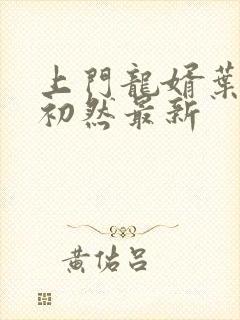 上門龍婿葉
初然最新
黃佑呂